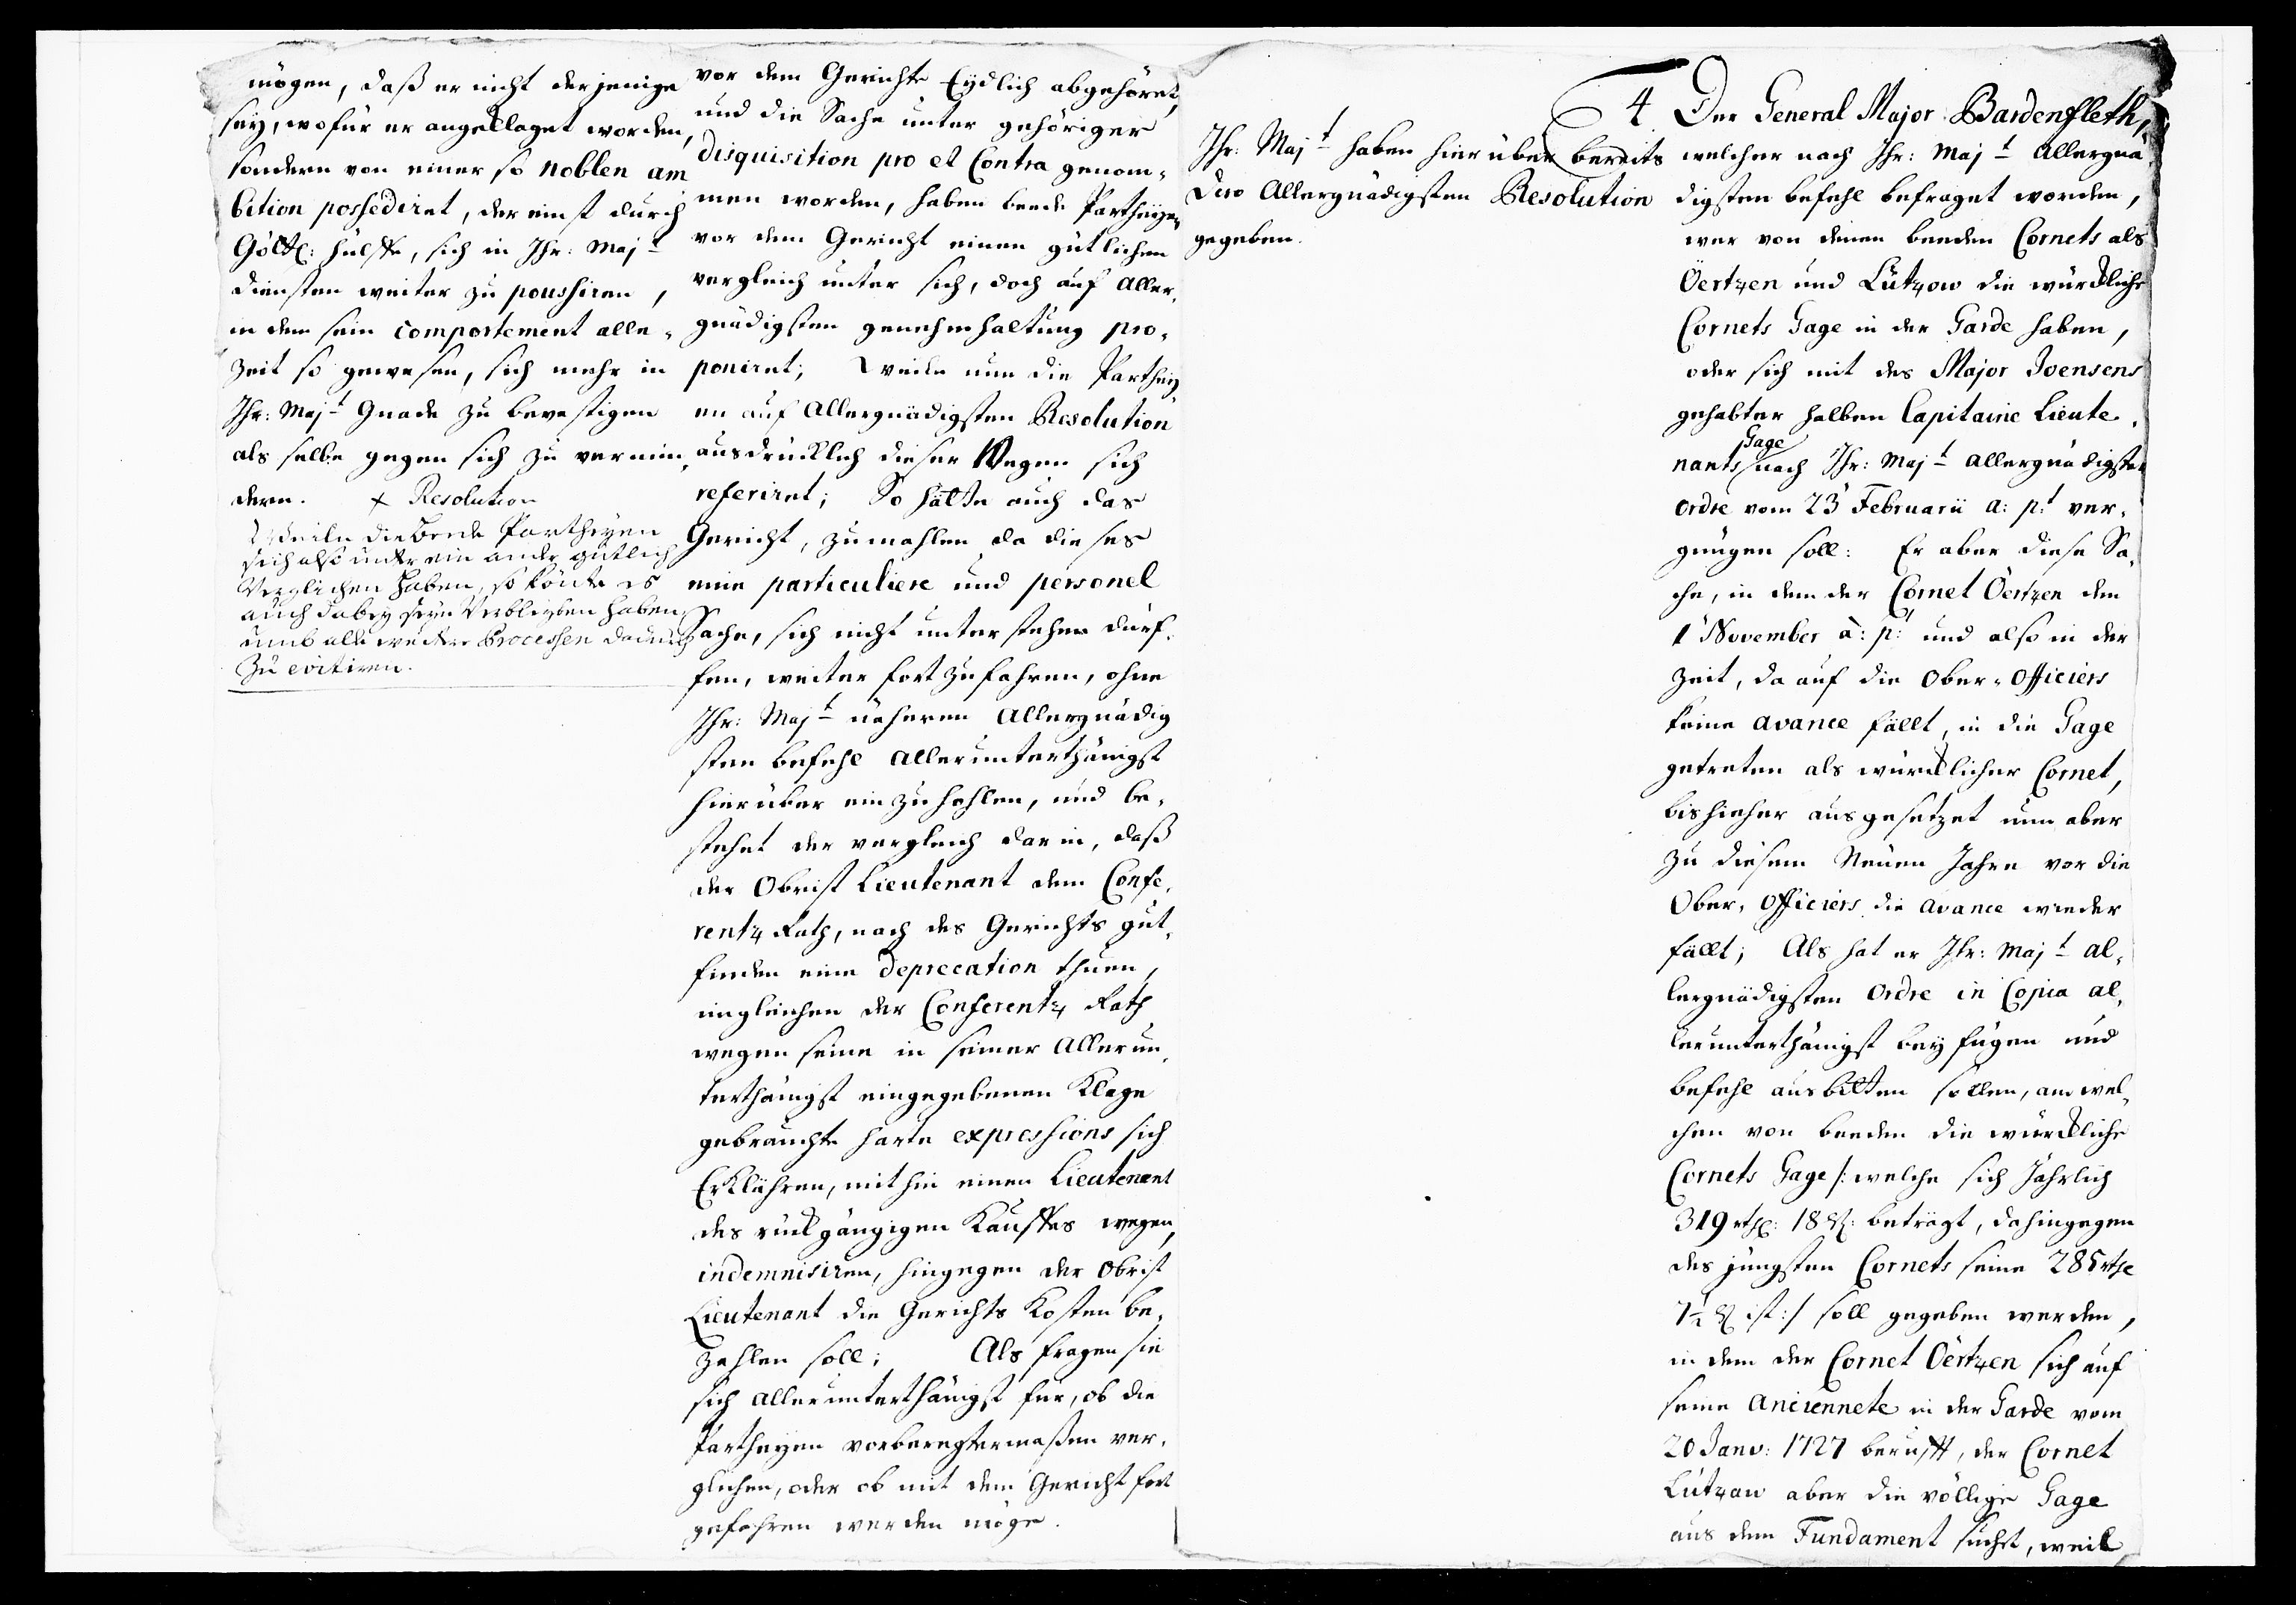 mögen, daß er nicht derjenige
sey, wofür er angeklaget worden,
sondern von einer so noblen am
bition possediret, der einst durch
Göttl: hülffe, sich in Ihr: Majt
diensten weiter zu poussiren,
in dem sein comportement alle-
zeit so gewesen, sich mehr in
Ihr: Majt Gnade zu bevestigen
als selbe gegen sich zu vermin-
dern. + Resolution
Weile die beede Partheyen
sich also unter ein ander gütlich
Verglichen haben, so könte es
auch dabey sein Verbleyben haben
umb alle weitere Processen dadurch
Zu evitiren.
vor dem Gerichte Eydlich abgehöret,
und die Sache unter gehöriger
disquisition pro et Contra genom-
men worden, haben beede Partheyen
vor dem Gericht einen gütlichen
vergleich unter sich, doch auf Aller-
gnädigsten genehmhaltung pro-
poniret; Weile nun die Parthey
en auf Allergnädigsten Resolution
ausdrücklich dieser Wegen sich
referiret; So hätte auch das
Gericht, zumahlen da dieses
eine particuliere und personel
Sache, sich nicht unterstehen dürf-
fen, weiter fortzufahren, ohne
Ihr: Majt näheren Allergnädig
sten befehl allerunterthänigst
hierüber einzuhohlen, und be-
stehet der vergleich darin, daß
der Obrist Lieutenant dem Confe-
rentz Rath, nach des Gerichts gut-
finden eine deprecation thuen,
imgleichen der Conferentz Rath
wegen seine in seiner Allerun-
terthänigst eingegebenen Klage
gebrauchte harte expressions sich
Erklähren, mithin einen Lieutenant
des rückgängigen Kauffes wegen,
indemnisiren, hingegen der Obrist
Lieutenant die Gerichts Kosten be-
zahlen soll; Als fragen sie
sich allerunterthänigst für, ob die
Partheyen vorberegtermaßen ver-
glichen, oder ob mit dem Gericht fort
gefahren werden möge.
Ihr: Majt haben hierüber bereits
Dero Allergnädigsten Resolution
gegeben.
4 Der General Major Bardenfleth,
welcher nach Ihr: Majt Allergnä
digsten befehl befraget worden,
wer von denen beeden Cornets als
Öertzen und Lützow die würckliche
Cornets Gage in der Garde haben,
oder sich mit des Major Ivensens
gehabter halben Capitaine Lieute-
nants Gage nach Ihr: Majt Allergnädigsten
Ordre vom 23 Februarii a: pt ver-
gnügen soll: Er aber diese Sa-
che, in dem der Cornet Öertzen den
1 November a: p: und also in der
Zeit, da auf die Ober-Officiers
keine avance fällt, in die Gage
getreten als würcklicher Cornet,
bishieher ausgesetzet nun aber
zu diesem Neuen Jahre vor die
Ober-Officiers die avance wieder
fällt; Als hat er Ihr: Majt al-
lergnädigsten Ordre in Copia al-
lerunterthänigst beyfügen und
befehl ausbitten sollen, an wel-
chen von beeden die würckliche
Cornets Gage /: welche sich Jährlich
319 rthl: 18 ß: beträgt, dahingegen
des jüngsten Cornets seine 285 rthl
7½ ß ist :/ soll gegeben werden,
in dem der Cornet Öertzen sich auf
seine Anciennete in der Garde vom
20 Janv: 1727 berufft, der Cornet
Lützow aber die völlige Gage
aus dem Fundament sucht, weil